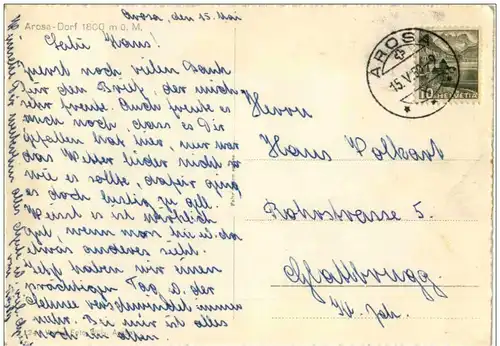 Arosa, den 15. Mai
Arosa-Dorf 1800 m ü. M.
Hans!
Zuerst noch vielen Dank
für den Brief, der mich
sehr freute. Auch freute es
mich noch, dass es Dir
gefallen hat hier, nur war
das Wetter leider nicht so
wie es sollte, dafür ging
es doch lustig zu, gell.
Weisst es ist wirklich
gut, wenn man hie u. da
etwas anderes sieht.
Jetzt haben wir einen
prächtigen Tag u. der
Schnee verschwindet immer
mehr. Bei mir ist alles
noch im alten.
AROSA
15.V
10
HELVETIA
Herrn
Hans Volkart
Rohrstrasse 5.
Glattbrugg
Kt. Zch.